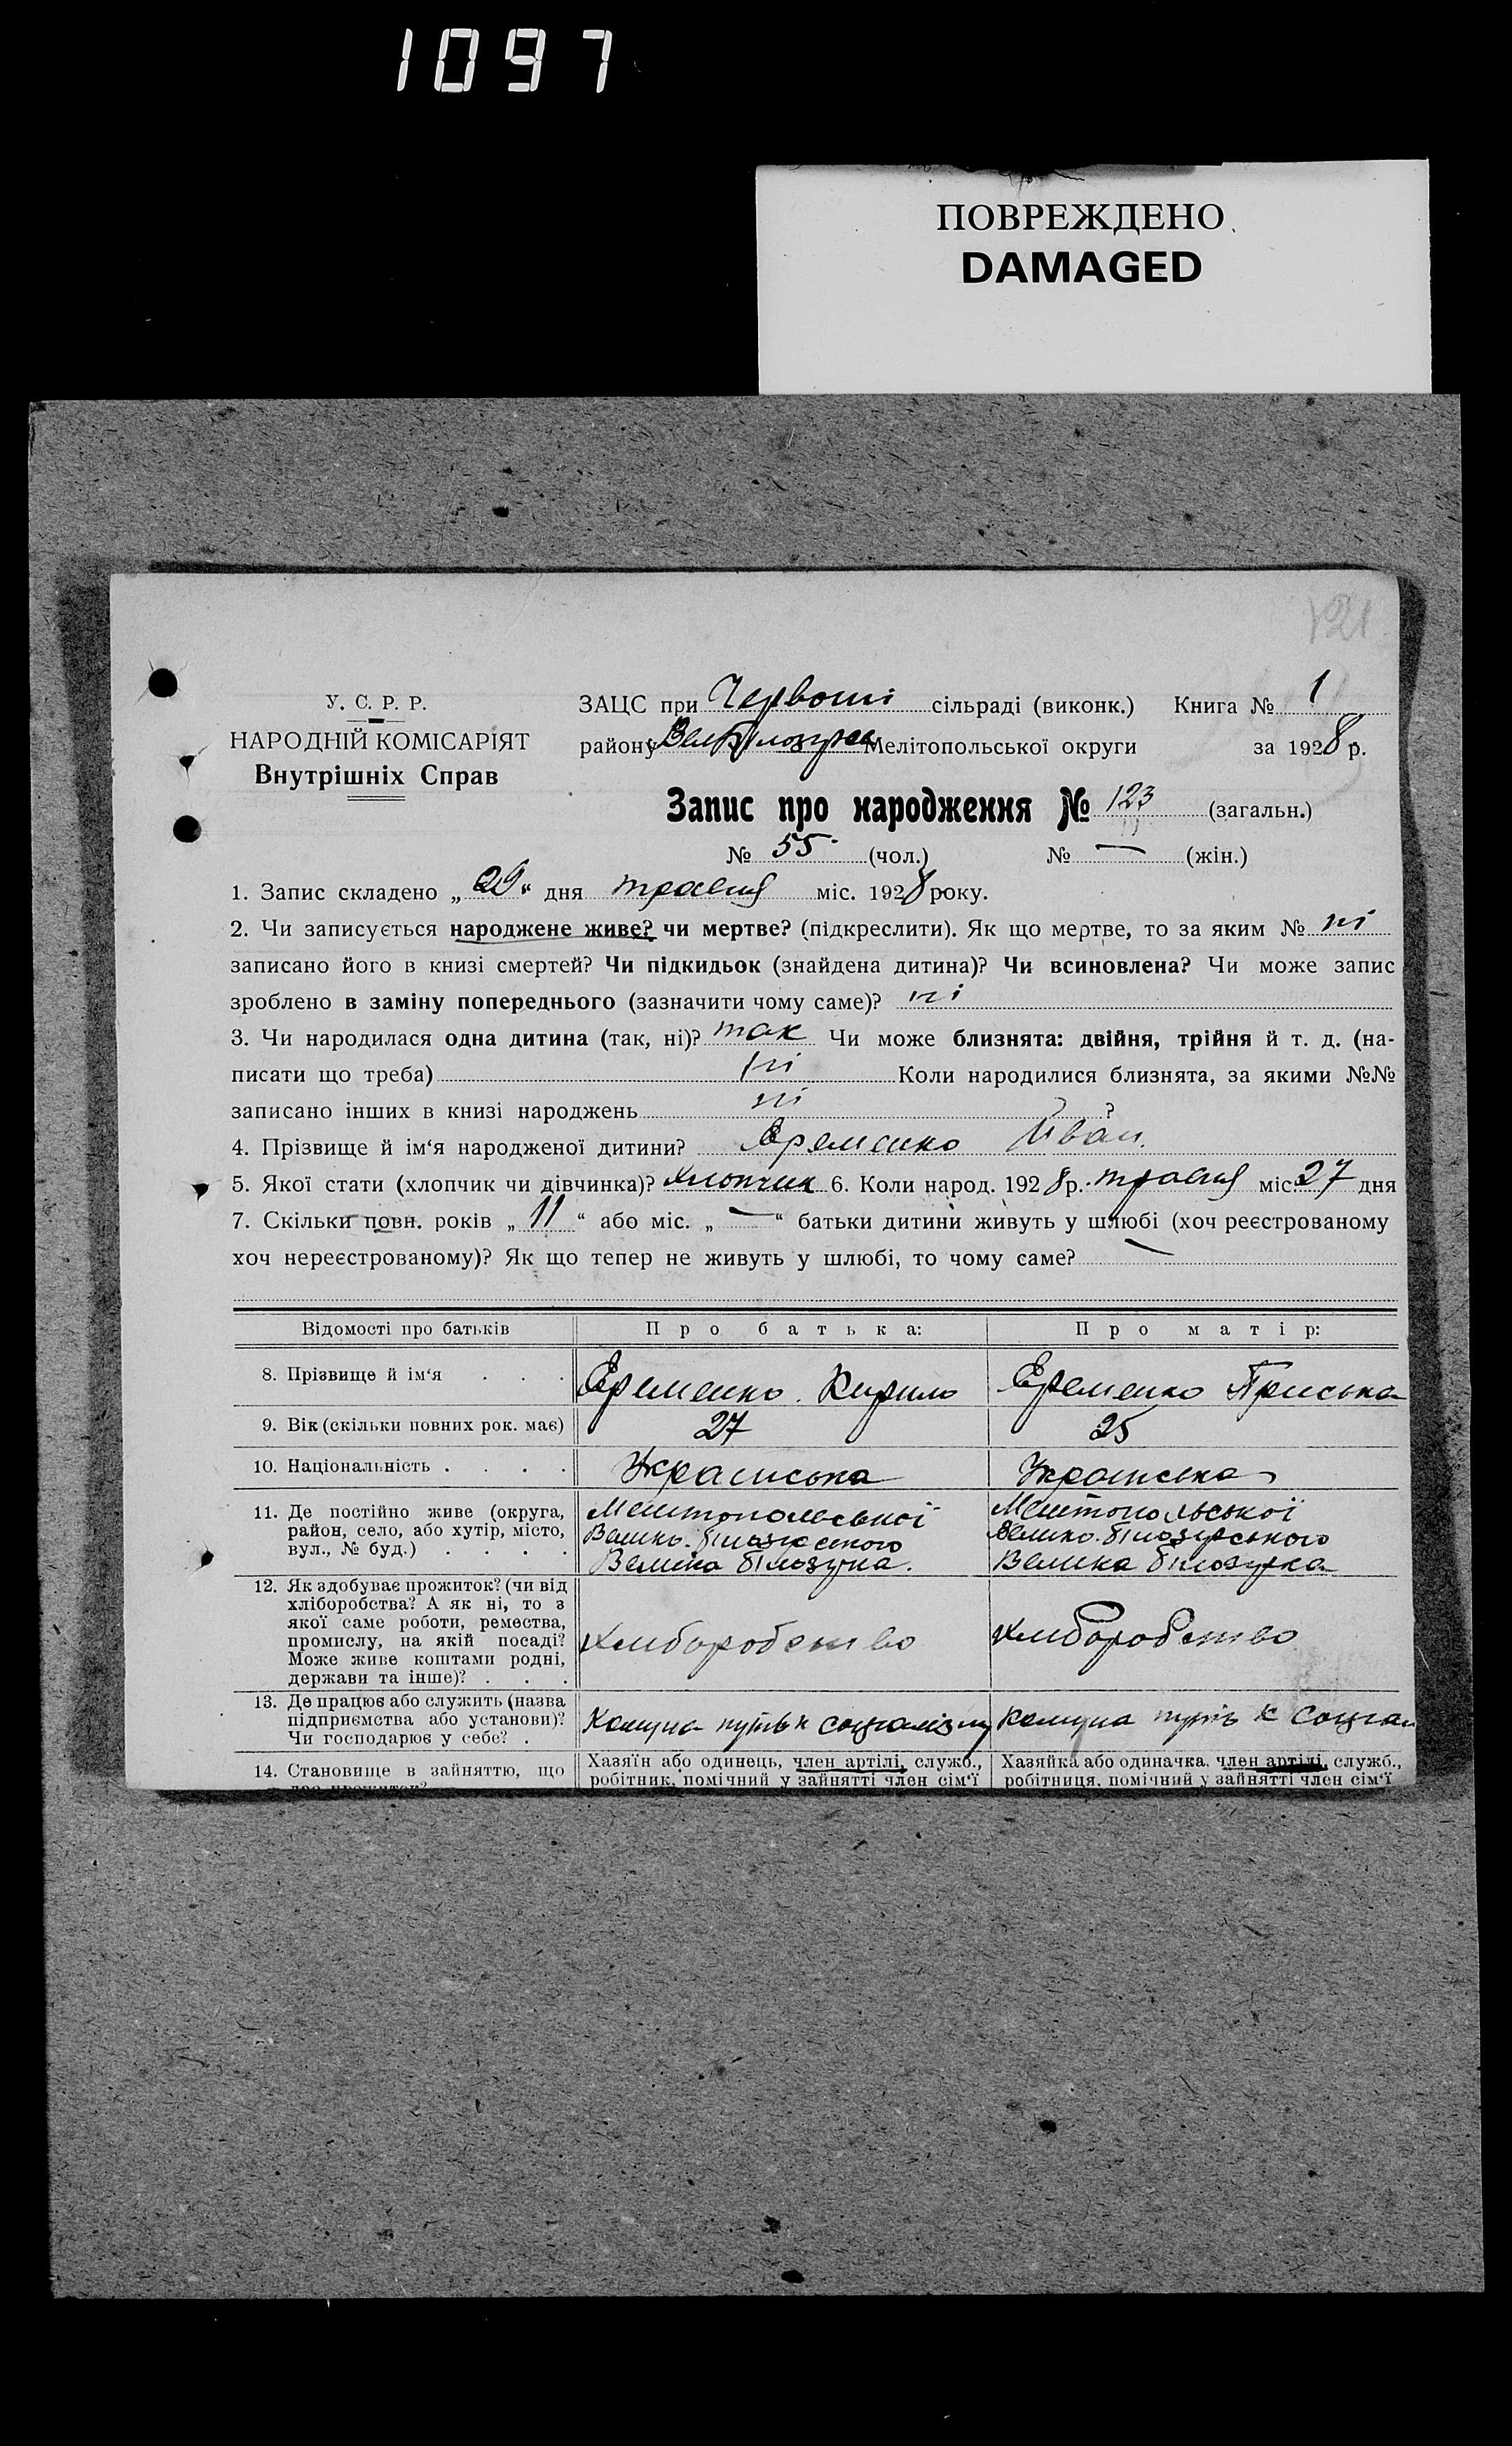 1097
ПОВРЕЖДЕНО
DAMAGED
121
У. С. Р. Р.
НАРОДНІЙ КОМІСАРІЯТ
Внутрішніх Справ
ЗАЦС при Червоній сільраді (виконк.) Книга № 1
району Мелітопольської округи за 1928 р.
Запис про народження № 123 (загальн.)
№ 55 (чол.) № — (жін.)
1. Запис складено „29“ дня травня міс. 1928 року.
2. Чи записується народжене живе? чи мертве? (підкреслити). Як що мертве, то за яким № ні
записано його в книзі смертей? Чи підкидьок (знайдена дитина)? Чи всиновлена? Чи може запис
зроблено в заміну попереднього (зазначити чому саме)? ні
3. Чи народилася одна дитина (так, ні)? так Чи може близнята: двійня, трійня й т. д. (на-
писати що треба) ні Коли народилися близнята, за якими №№
записано інших в книзі народжень ні ?
4. Прізвище й ім‘я народженої дитини? Єременко Иван.
5. Якої стати (хлопчик чи дівчинка)? Хлопчик 6. Коли народ. 1928 р. травня міс. 27 дня
7. Скільки повн. років „11“ або міс. „—“ батьки дитини живуть у шлюбі (хоч реєстрованому
хоч нереєстрованому)? Як що тепер не живуть у шлюбі, то чому саме? —
Відомості про батьків Про батька: Про матір:
8. Прізвище й ім‘я . . . Єременко Кирило Єременко Приська
9. Вік (скільки повних рок. має) 27 25
10. Національність . . . . Українська Українська
11. Де постійно живе (округа,
район, село, або хутір, місто,
вул., № буд.) . . . .
Мелітопольської
Велико-білозерського
Велика білозурка.
Мелітопольської
Велико-білозурського
Велика білозурка
12. Як здобуває прожиток? (чи від
хліборобства? А як ні, то з
якої саме роботи, ремества,
промислу, на якій посаді?
Може живе коштами родні,
держави та інше)? . . .
Хліборобство
Хліборобство
13. Де працює або служить (назва
підприємства або установи)?
Чи господарює у себе? .
Комуна путь к соціалізму
Комуна путь к соціал
14. Становище в зайняттю, що
Хазяїн або одинець, член артілі, служб.,
робітник, помічний у зайнятті член сім‘ї
Хазяйка або одиначка, член артілі, служб.,
робітниця, помічний у зайнятті член сім‘ї